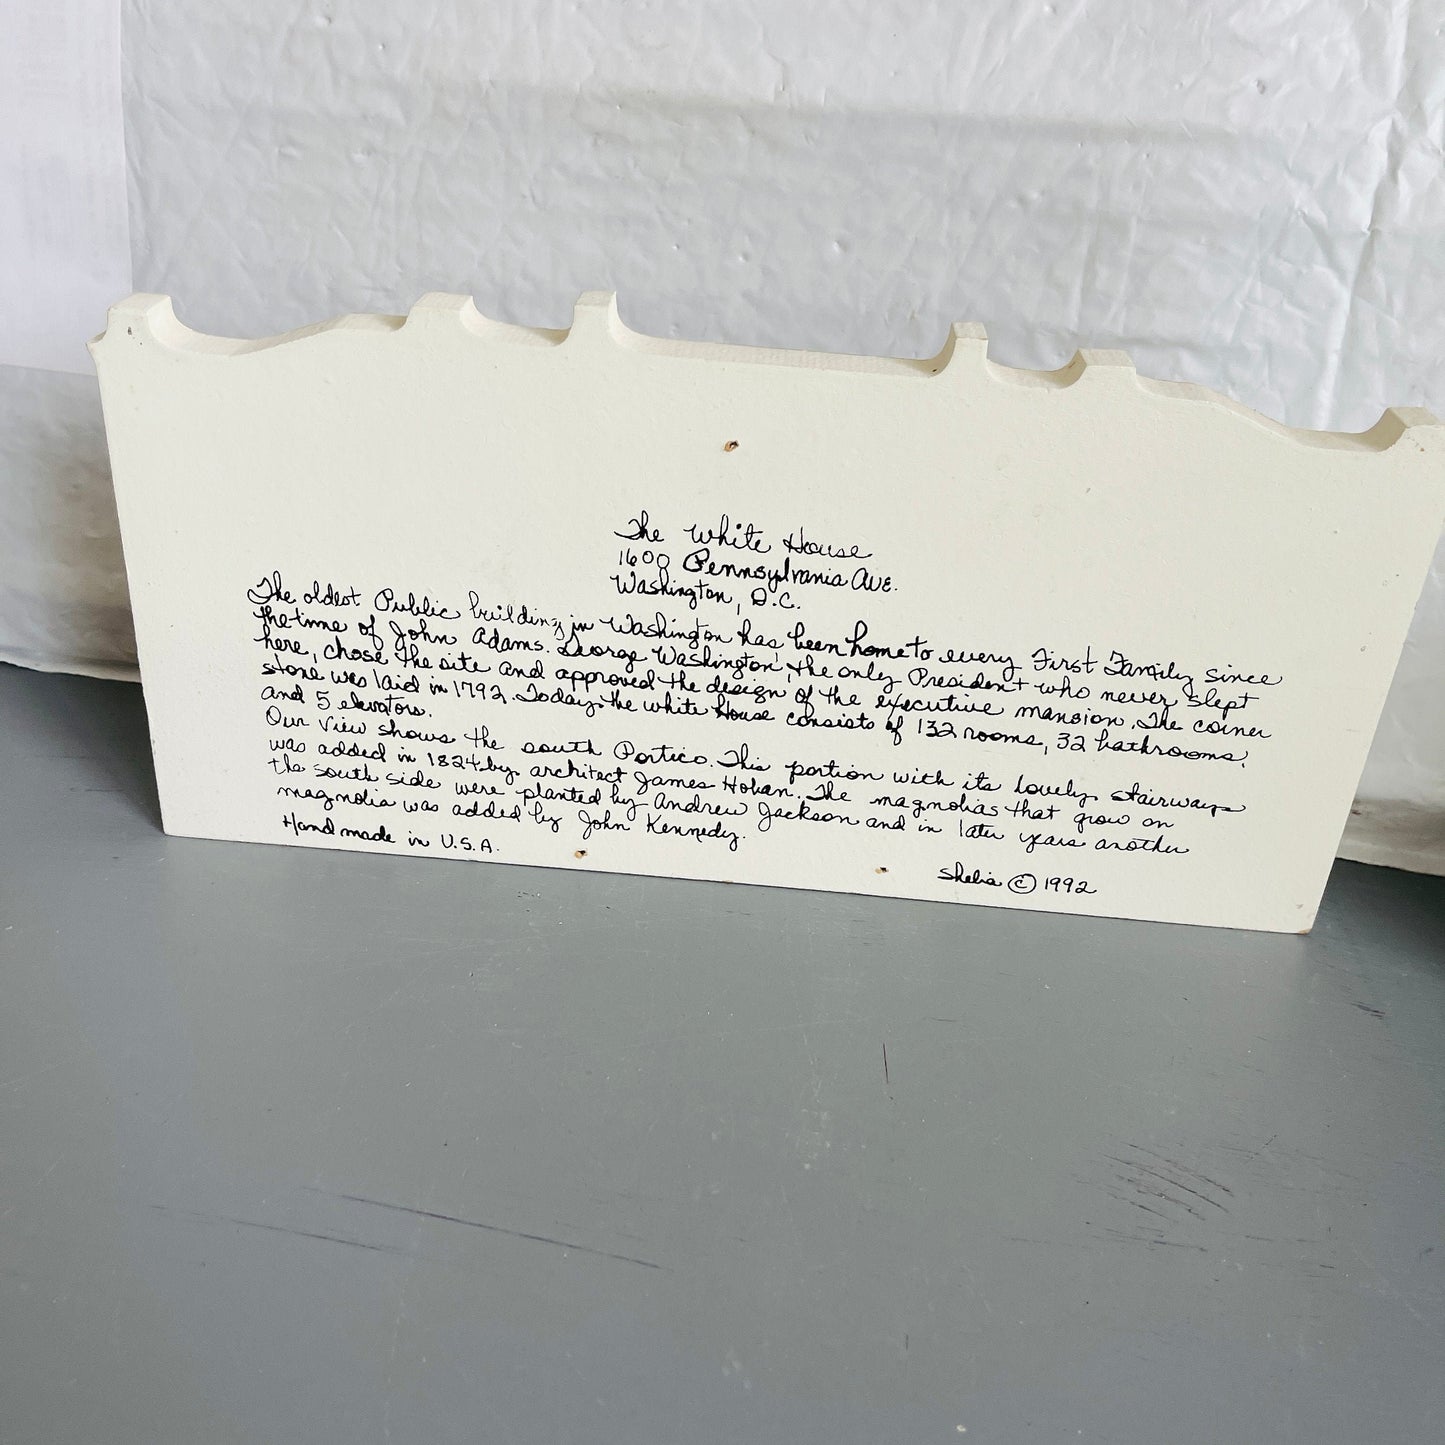 The White House
1600 Pennsylvania Ave.
Washington, D.C.
The oldest Public building in Washington has been home to every First Family since
the time of John Adams. George Washington, the only President who never slept
here, chose the site and approved the design of the executive mansion. The corner
stone was laid in 1792. Today the white House consists of 132 rooms, 32 bathrooms,
and 5 elevators.
Our view shows the south Portico. This portion with its lovely stairways
was added in 1824 by architect James Hoban. The magnolias that grow on
the south side were planted by Andrew Jackson and in later years another
magnolia was added by John Kennedy.
Hand made in U.S.A.
Shelia © 1992